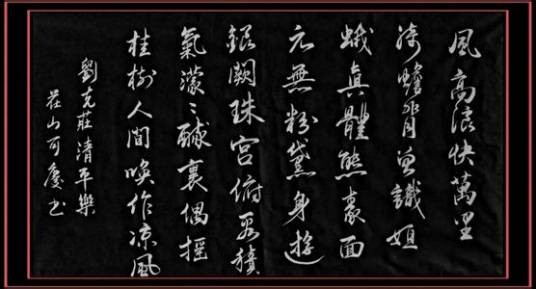 風高浪快萬里
騎蟾背曾識姮
娥真體態素面
元無粉黛身遊
銀闕珠宮俯看積
氣濛〻醉裏偶搖
桂樹人間喚作凉風
劉克莊清平樂
山可慶书